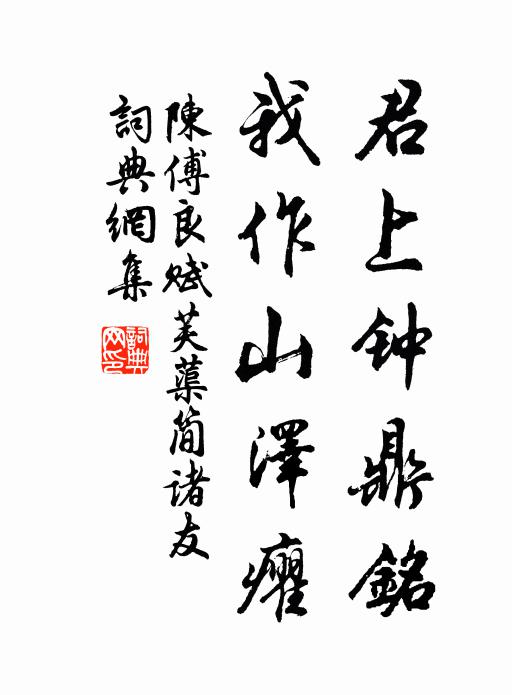 君上钟鼎銘
我作山澤癯
陳傅良赋芙蕖简诸友
詞典網集
詞典网印